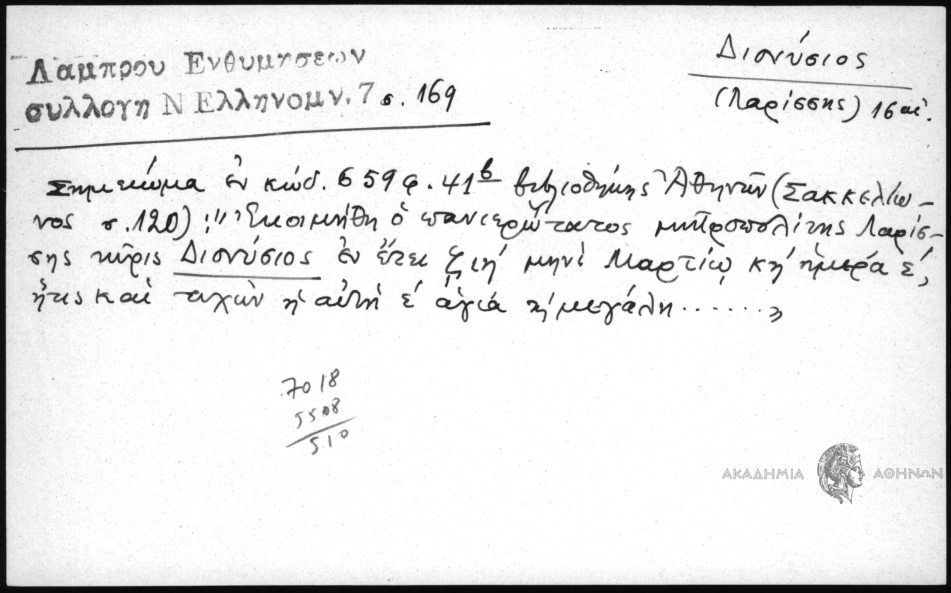 Λαμπρου Ενθυμησεων
συλλογη Ν Ελληνομν. 7 σ. 169
Διονύσιος
(Λαρίσσης) 16 αἰ.
Σημείωμα ἐν κώδ. 659 φ. 41β βιβλιοθήκης Ἀθηνῶν (Σακκελίω-
νος σ. 120) : "Ἐκοιμήθη ὁ πανιερώτατος μητροπολίτης Λαρίσ-
σης κῦρις Διονύσιος ἐν ἔτει ζιη' μηνὶ Μαρτίῳ κη' ἡμέρᾳ ε',
ἥτις καὶ τυχὼν ἡ αὐτὴ ε' ἁγία ἡ μεγάλη ......"
7018
5508
510
ΑΚΑΔΗΜΙΑ ΑΘΗΝΩΝ